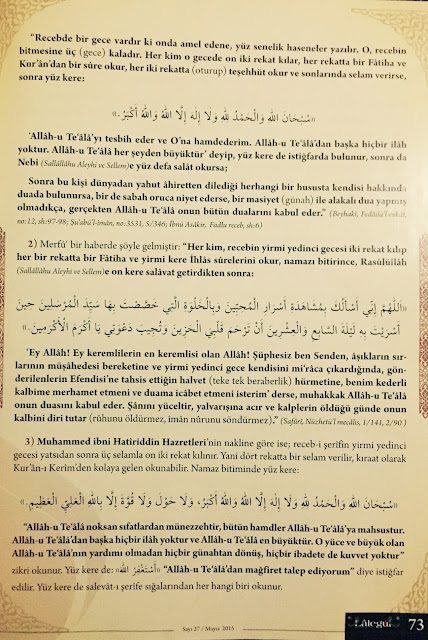 “Recebde bir gece vardır ki onda amel edene, yüz senelik haseneler yazılır. O, recebin
bitmesine üç (gece) kaladır. Her kim o gecede on iki rekat kılar, her rekatta bir Fâtiha ve
Kur’ân’dan bir sûre okur, her iki rekatta (oturup) teşehhüt okur ve sonlarında selam verirse,
sonra yüz kere:
«سُبْحَانَ اللهِ وَالْحَمْدُ لِلهِ وَلَا إِلَهَ إِلَّا اللهُ وَاللهُ أَكْبَرُ.»
‘Allâh-u Te‘âlâ’yı tesbih eder ve O’na hamdederim. Allâh-u Te‘âlâ’dan başka hiçbir ilâh
yoktur. Allâh-u Te‘âlâ her şeyden büyüktür’ deyip, yüz kere de istiğfarda bulunur, sonra da
Nebî (Sallâllâhu Aleyhi ve Sellem)’e yüz defa salât okursa;
Sonra bu kişi dünyadan yahut âhiretten dilediği herhangi bir hususta kendisi hakkında
duada bulunursa, bir de sabah oruca niyet ederse, bir masiyet (günah) ile alakalı dua yapmış
olmadıkça, gerçekten Allâh-u Te‘âlâ onun bütün dualarını kabul eder.” (Beyhakî, Fedâilü’l-evkât,
no:12, sh:97-98; Şu‘abü’l-Îmân, no:3531, 5/346; İbnu Asâkir, Fadlu receb, sh:6)
2) Merfû‘ bir haberde şöyle gelmiştir: “Her kim, recebin yirmi yedinci gecesi iki rekat kılıp
her bir rekatta bir Fâtiha ve yirmi kere İhlâs sûrelerini okur, namazı bitirince, Rasûlüllâh
(Sallâllâhu Aleyhi ve Sellem)e on kere salâvat getirdikten sonra:
«اَللّٰهُمَّ إِنِّي أَسْأَلُكَ بِمُشَاهَدَةِ أَسْرَارِ الْمُحِبِّينَ وَبِالْخَلْوَةِ الَّتِي خَصَّصْتَ بِهَا سَيِّدَ الْمُرْسَلِينَ حِينَ
أَسْرَيْتَ بِهِ لَيْلَةَ السَّابِعِ وَالْعِشْرِينَ أَنْ تَرْحَمَ قَلْبِيَ الْحَزِينَ وَتُجِيبَ دَعْوَتِي يَا أَكْرَمَ الْأَكْرَمِينَ.»
‘Ey Allâh! Ey keremlilerin en keremlisi olan Allâh! Şüphesiz ben Senden, âşıkların sır-
larının müşâhedesi bereketine ve yirmi yedinci gece kendisini mi‘râca çıkardığında, gön-
derilenlerin Efendisi’ne tahsis ettiğin halvet (teke tek beraberlik) hürmetine, benim kederli
kalbime merhamet etmeni ve duama icâbet etmeni isterim’ derse, muhakkak Allâh-u Te‘âlâ
onun duasını kabul eder. Şânını yüceltir, yalvarışına acır ve kalplerin öldüğü günde onun
kalbini diri tutar (rûhunu öldürmez, îmân nûrunu söndürmez).” (Safûrî, Nüzhetü’l mecâlis, 1/141, 2/90 )
3) Muhammed ibni Hatiriddin Hazretleri’nin nakline göre ise; receb-i şerifin yirmi yedinci
gecesi yatsıdan sonra üç selamla on iki rekat kılınır. Yani dört rekatta bir selam verilir, kıraat olarak
Kur’ân-ı Kerim’den kolaya gelen okunabilir. Namaz bitiminde yüz kere:
«سُبْحَانَ اللهِ وَالْحَمْدُ لِلهِ وَلَا إِلَهَ إِلَّا اللهُ وَاللهُ أَكْبَرُ، وَلَا حَوْلَ وَلَا قُوَّةَ إِلَّا بِاللهِ الْعَلِيِّ الْعَظِيمِ.»
“Allâh-u Te‘âlâ noksan sıfatlardan münezzehtir, bütün hamdler Allâh-u Te‘âlâ’ya mahsustur.
Allâh-u Te‘âlâ’dan başka hiçbir ilâh yoktur ve Allâh-u Te‘âlâ en büyüktür. O yüce ve büyük olan
Allâh-u Te‘âlâ’nın yardımı olmadan hiçbir günahtan dönüş, hiçbir ibadete de kuvvet yoktur”
zikri okunur. Yüz kere de: «أَسْتَغْفِرُ اللهَ» “Allâh-u Te‘âlâ’dan mağfiret talep ediyorum” diye istiğfar
edilir. Yüz kere de salevât-ı şerife sığalarından her hangi biri okunur.
Sayı 27 / Mayıs 2015
Lâlegül 73